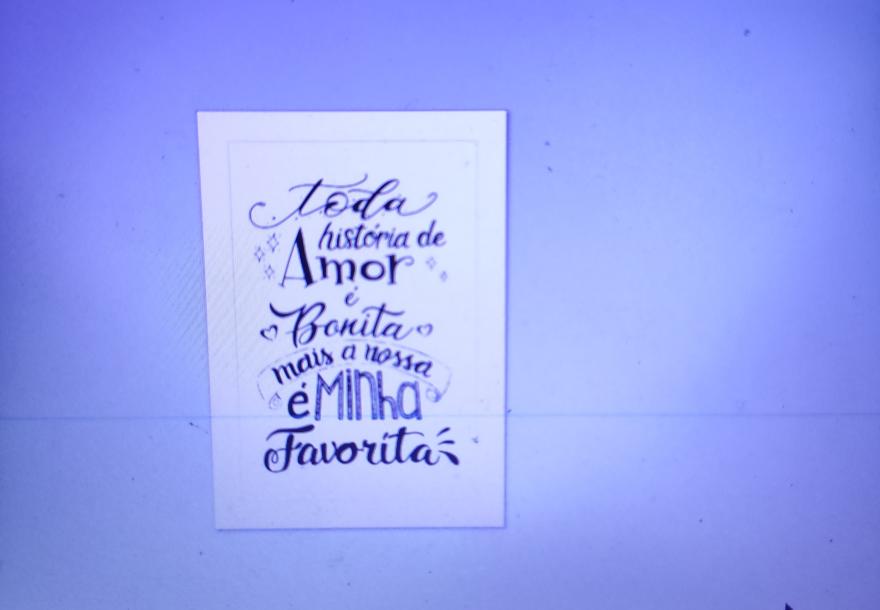 toda
história de
Amor
é
Bonita
mais a nossa
é Minha
Favorita